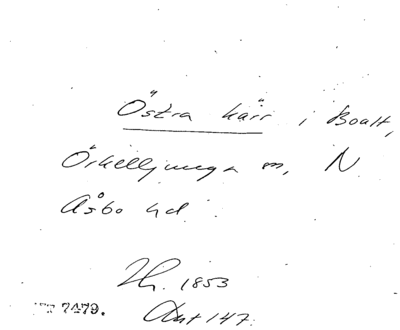 Östra kärr i Boalt,
Örkelljunga sn, N
Åsbo hd.
Lh. 1853
7479. Akt 147.